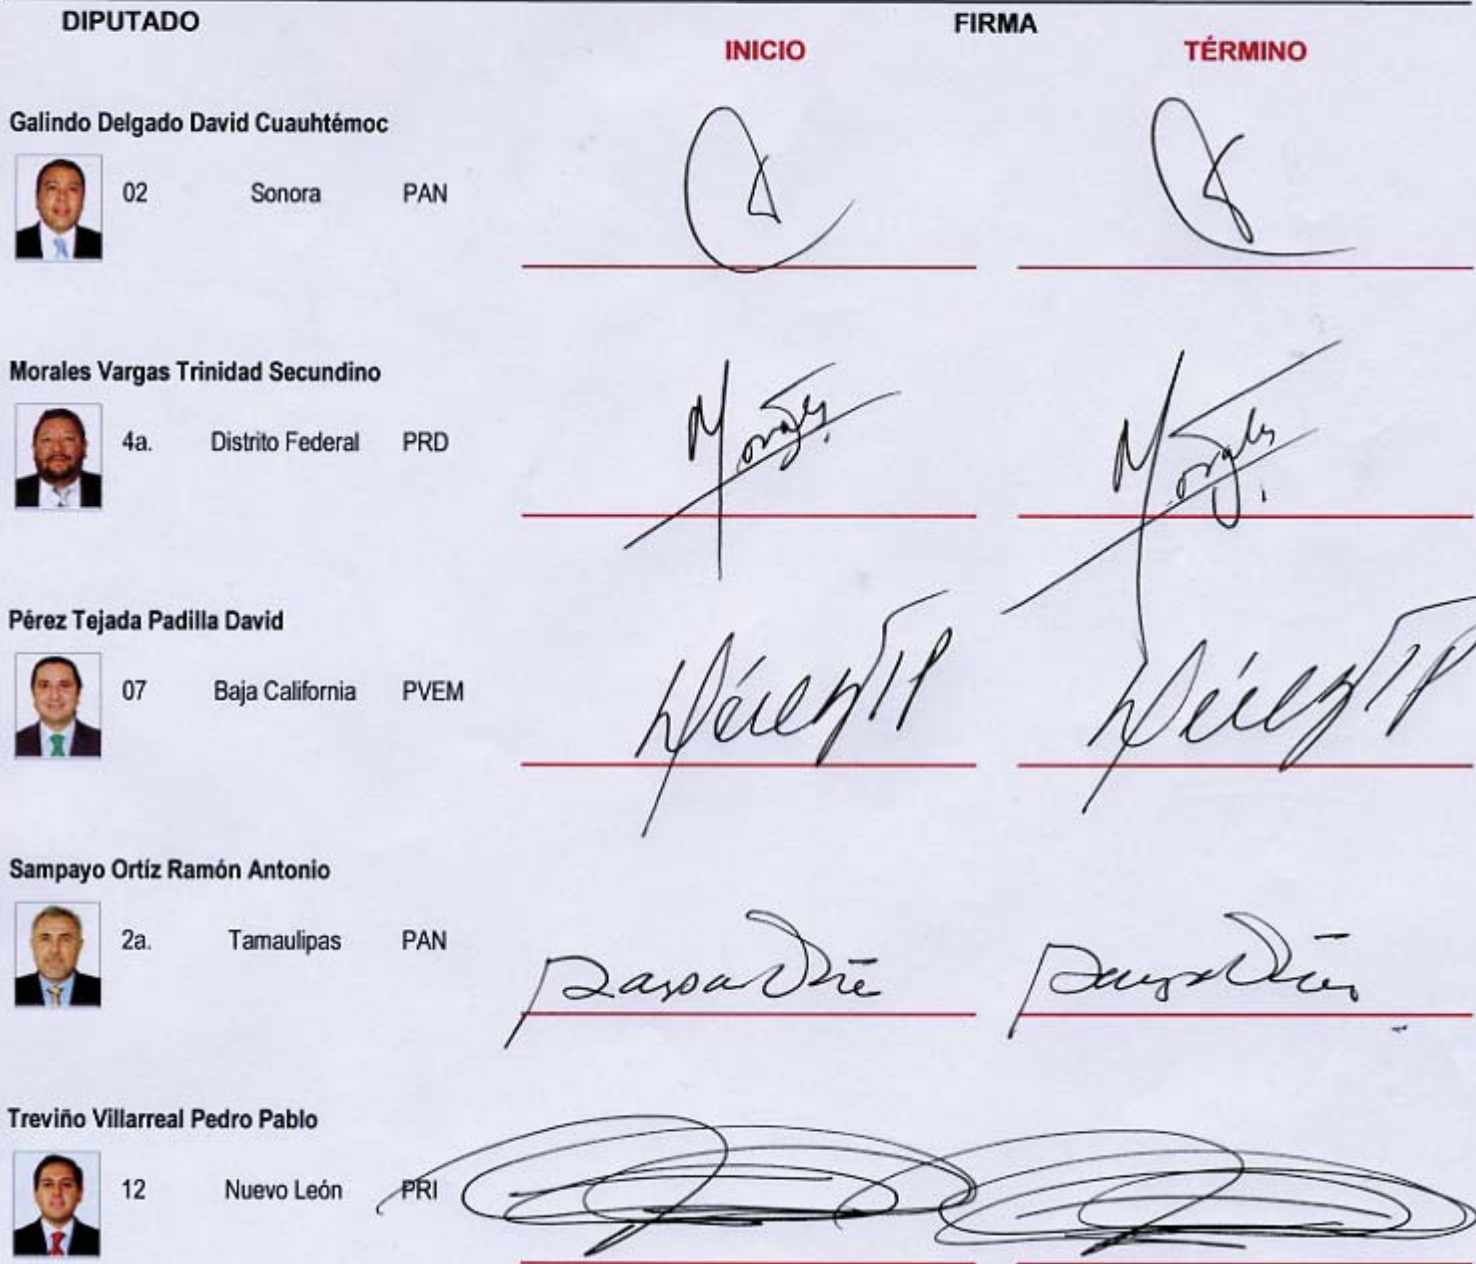 DIPUTADO FIRMA
INICIO TÉRMINO
Galindo Delgado David Cuauhtémoc
02 Sonora PAN
Morales Vargas Trinidad Secundino
4a. Distrito Federal PRD
Morales Morales
Pérez Tejada Padilla David
07 Baja California PVEM
Pérez TP Pérez TP
Sampayo Ortíz Ramón Antonio
2a. Tamaulipas PAN
Treviño Villarreal Pedro Pablo
12 Nuevo León PRI